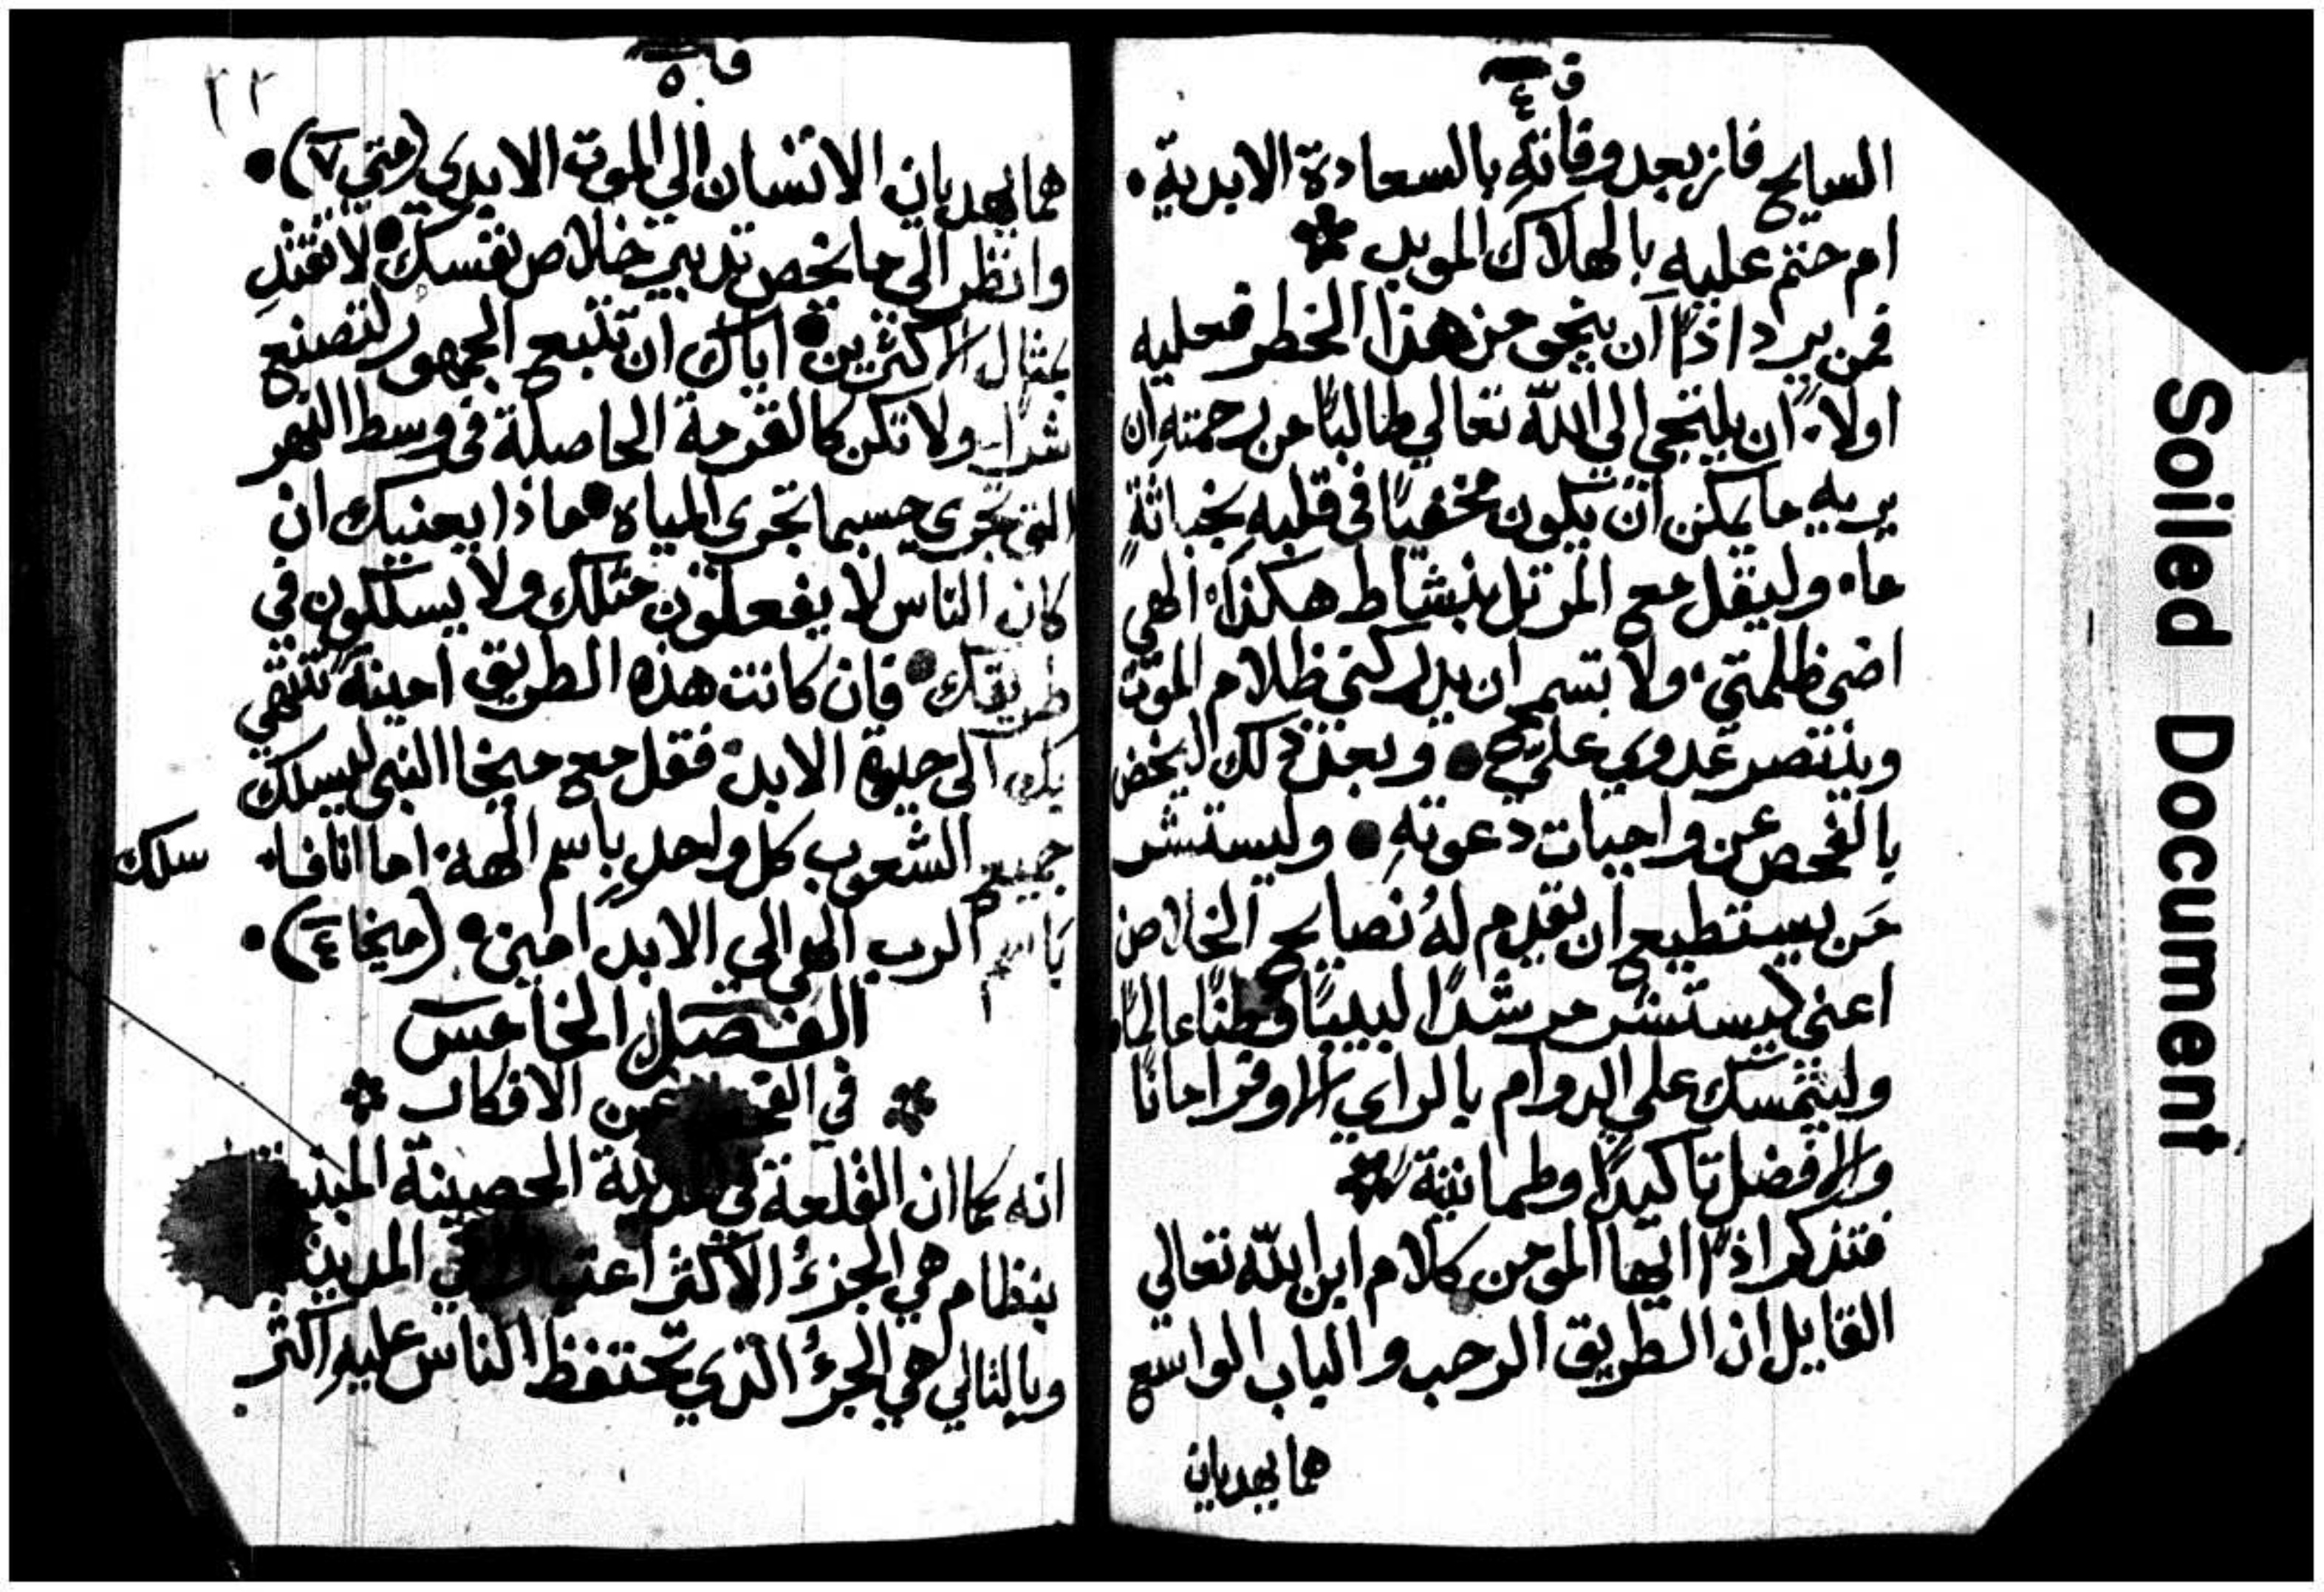 ق ٤
السايح فاز بعد وفاته بالسعادة الابدية٠
ام حتم عليه بالهلاك الموبد
فمن يرد اذًا ان ينجي من هذا الخطر فعليه
اولاً ان يلتجي الي الله تعالي طالبًا من رحمته ان
يريه ما يمكن ان يكون مخفيًا في قلبه بخباثةٍ
ما٠ وليقل مع المرتل بنشاط هكذا٠ الهي
اضي ظلمتي٠ ولا تسمح ان يدركني ظلام الموت
وينتصر عدوي عليّ ٠ وبعد ذلك
بالفحص عن واجبات دعوتهِ ٠ وليستشر
مَن يستطيع ان يقدم لهُ نصايح الخلاص
اعني ليستشر مرشدًا لبيبًا وفطنًا عالمًا
وليتمسك علي الدوام بالراي الاوفر امانًا
والافضل تاكيدًا وطمانينةً
فتذكر اذًا ايها المومن كلام ابن الله تعالي
القايل ان الطريق الرحب والباب الواسع
هما يهديان
فا ٥
٢٢
هما يهديان الانسان الي الموت الابدي (متي ٧)٠
وانظر الي ما يخص تدبير خلاص نفسك٠ لا تقتدِ
بمثال الاكثرين٠ اياك ان تتبع الجمهور لتصنع
شرًا٠ ولا تكن كالقرمة الحاصلة في وسط النهر
التي تجري حسبما تجري المياه٠ ماذا يعنيك ان
كان الناس لا يفعلون مثلك ولا يسلكون في
طريقك٠ فان كانت هذه الطريق امينة تنتهي
بك الي حيوة الابد٠ فقل مع ميخا النبي ليسلك
جميع الشعوب كل واحدٍ باسم الهه٠ اما انا فا٠
سلك
باسم الرب الهي الي الابد امين٠ (ميخا ٤)٠
الفصل الخامس
في الفحص عن الافكار
انه كما ان القلعة في المدينة الحصينة
بنظام هي الجزءُ الاكثر اعتبارًا في المدينة
وبالتالي هي الجزءُ الذي تحتفظ الناس عليه اكثر٠